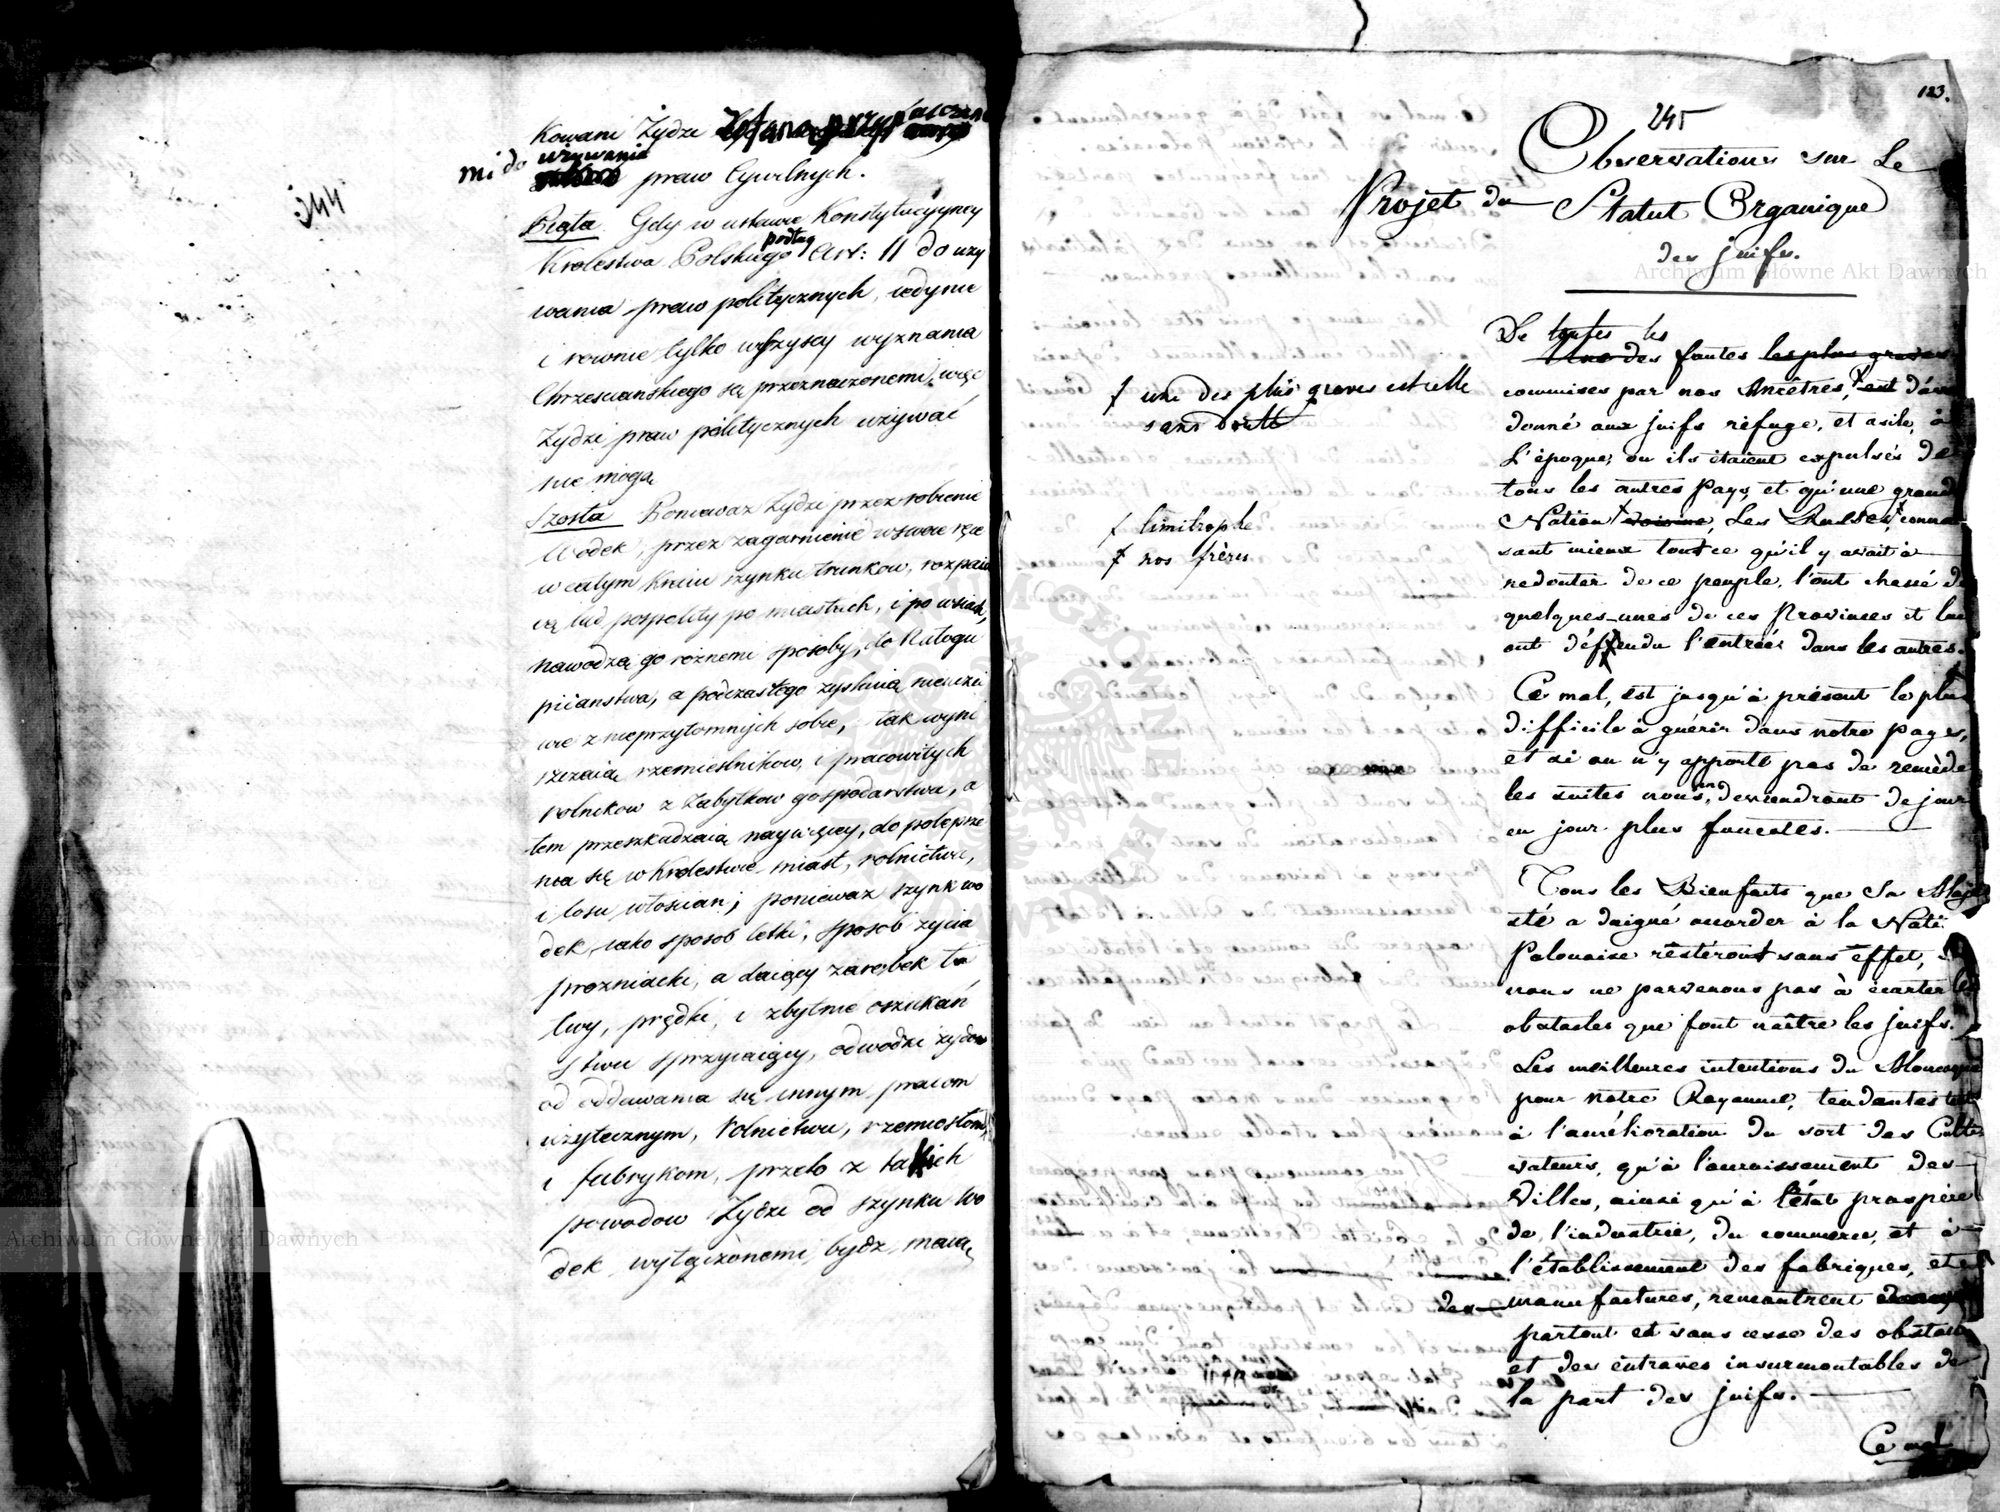 244
kowani Żydzi zostaną przypuszczeni
mi do używania
praw Cywilnych.
Piąta. Gdy w ustawie Konstytucyyney
Krolestwa Polskiego podług Art: 11 do uży
wania praw politycznych, iedynie
i rownie tylko wszyscy wyznania
Chrzescianskiego są przeznaczonemi, więc
Żydzi praw politycznych używać
nie mogą
Szosta Ponieważ Żydzi przez robienie
Wodek, przez zagarnienie w swoie ręce
w całym kraiu szynku trunkow, rozpaia
ią lud pospolity po miastach, i po wsiach,
nawodzą go rożnemi sposoby, do Nałogu
piianstwa, a podczas tego zyskuią nieuczci
wie z nieprzytomnych sobie, tak wyni
szczaią rzemieslnikow, i pracowitych
rolnikow z Zabytkow gospodarstwa, a
tem przeszkadzaią naywięcey, do polepsze
nia się w Krolestwie miast, rolnictwa,
i losu włoscian; ponieważ szynk wo
dek, iako sposob letki, sposob życia
prozniacki, a daiący zarobek ła
twy, prędki, i zbytnie oszukań
stwu sprzyiaiący, odwodzi żydow
od oddawania się innym pracom
użytecznym, Rolnictwu, rzemiosłom,
i fabrykom, przeto z takich
powodow Żydzi od szynku wo
dek wyłączonemi bydź maią,
123.
245
Observations sur Le
Projet du Statut Organique
des juifs.
De toutes les
Une des fautes les plus graves
commises par nos Ancêtres, est d'avoir
donné aux juifs réfuge, et asile, à
L'époque, ou ils étaient expulsés de
tous les autres Pays, et qu'une grande
Nation voisine, Les Russes, connais
sant mieux tout ce qu'il y avait à
redouter de ce peuple, l'ont chassé de
quelques-unes de ces Provinces et lui
ont déffendu l'entrée dans les autres.
† une des plus graves est celle
sans doute
† limitrophe
† nos frères
Ce mal, est jusqu'à présent le plus
difficile à guérir dans notre pays,
et si on n'y apporte pas de remède
les suites nous en deviendront de jour
en jour plus funestes.
Tous les Bienfaits que Sa Maje
sté a daigné accorder à la Nati:
Polonaise résteront sans effet, si
nous ne parvenons pas à écarter les
obstacles que font naître les juifs.
Les meilleures intentions du Monarque
pour nôtre Royaume, tendantes tant
à l'amélioration du sort des Culti
vateurs, qu'à l'accroissement des
Villes, ainsi qu'à l'état prospère
de l'industrie, du commerce, et à
l'établissement des fabriques, et
des manufactures, rencontrent
partout et sans cesse des obstacles
et des entraves insurmontables de
la part des juifs.
Ce mal
Archiwum Główne Akt Dawnych
Archiwum Główne Akt Dawnych